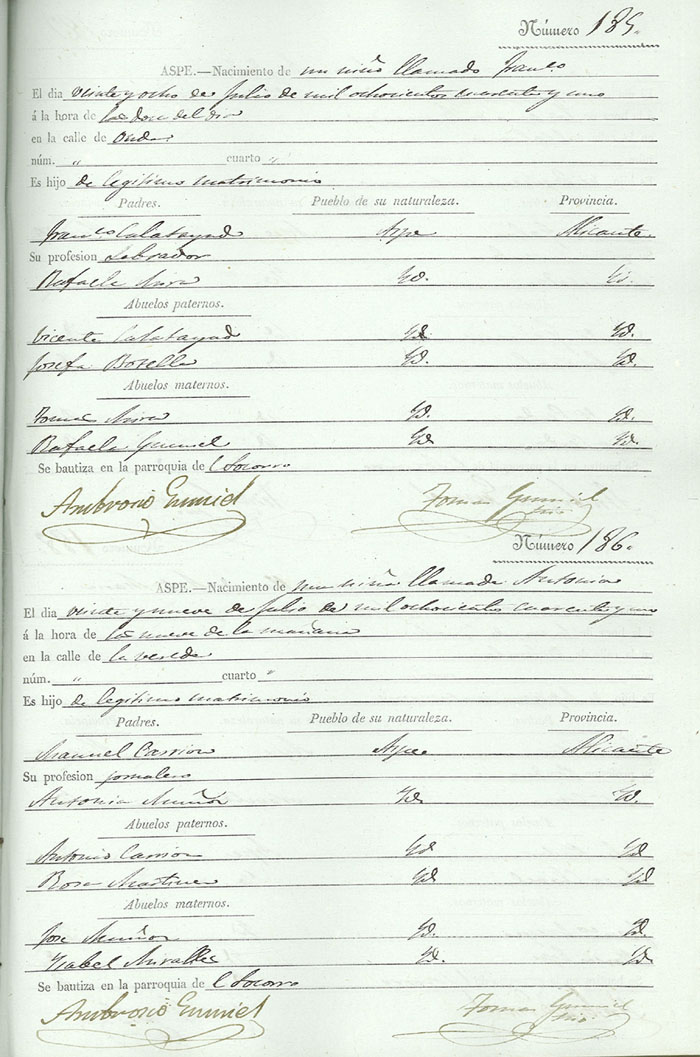 Número 185.
ASPE.—Nacimiento de un niño llamado Franco
El dia veinte y ocho de Julio de mil ochocientos cuarenta y uno
á la hora de las doce del dia
en la calle de Onda
núm. " cuarto "
Es hijo de legitimo matrimonio
Padres. Pueblo de su naturaleza. Provincia.
Franco Calatayud Aspe Alicante.
Su profesion Labrador
Rafaela Mira Yd. Yd.
Abuelos paternos.
Vicente Calatayud Yd. Yd.
Josefa Botella Yd. Yd.
Abuelos maternos.
Tomas Mira Yd. Yd.
Rafaela Gumiel Yd Yd.
Se bautiza en la parroquia de l Socorro
Ambrosio Gumiel Tomas Gumiel
Número 186.
ASPE.—Nacimiento de una niña llamada Antonia
El dia veinte y nueve de Julio de mil ochocientos cuarenta y uno
á la hora de las nueve de la mañana
en la calle de la vereda
núm. " cuarto "
Es hijo de legitimo matrimonio
Padres. Pueblo de su naturaleza. Provincia.
Manuel Carrion Aspe Alicante
Su profesion jornalero
Antonia Muñoz Yd. Yd.
Abuelos paternos.
Antonio Carrion Yd Yd
Rosa Martinez Yd Yd
Abuelos maternos.
Jose Muñoz Yd. Yd.
Ysabel Miralles Yd. Yd.
Se bautiza en la parroquia de l Socorro
Ambrosio Gumiel Tomas Gumiel